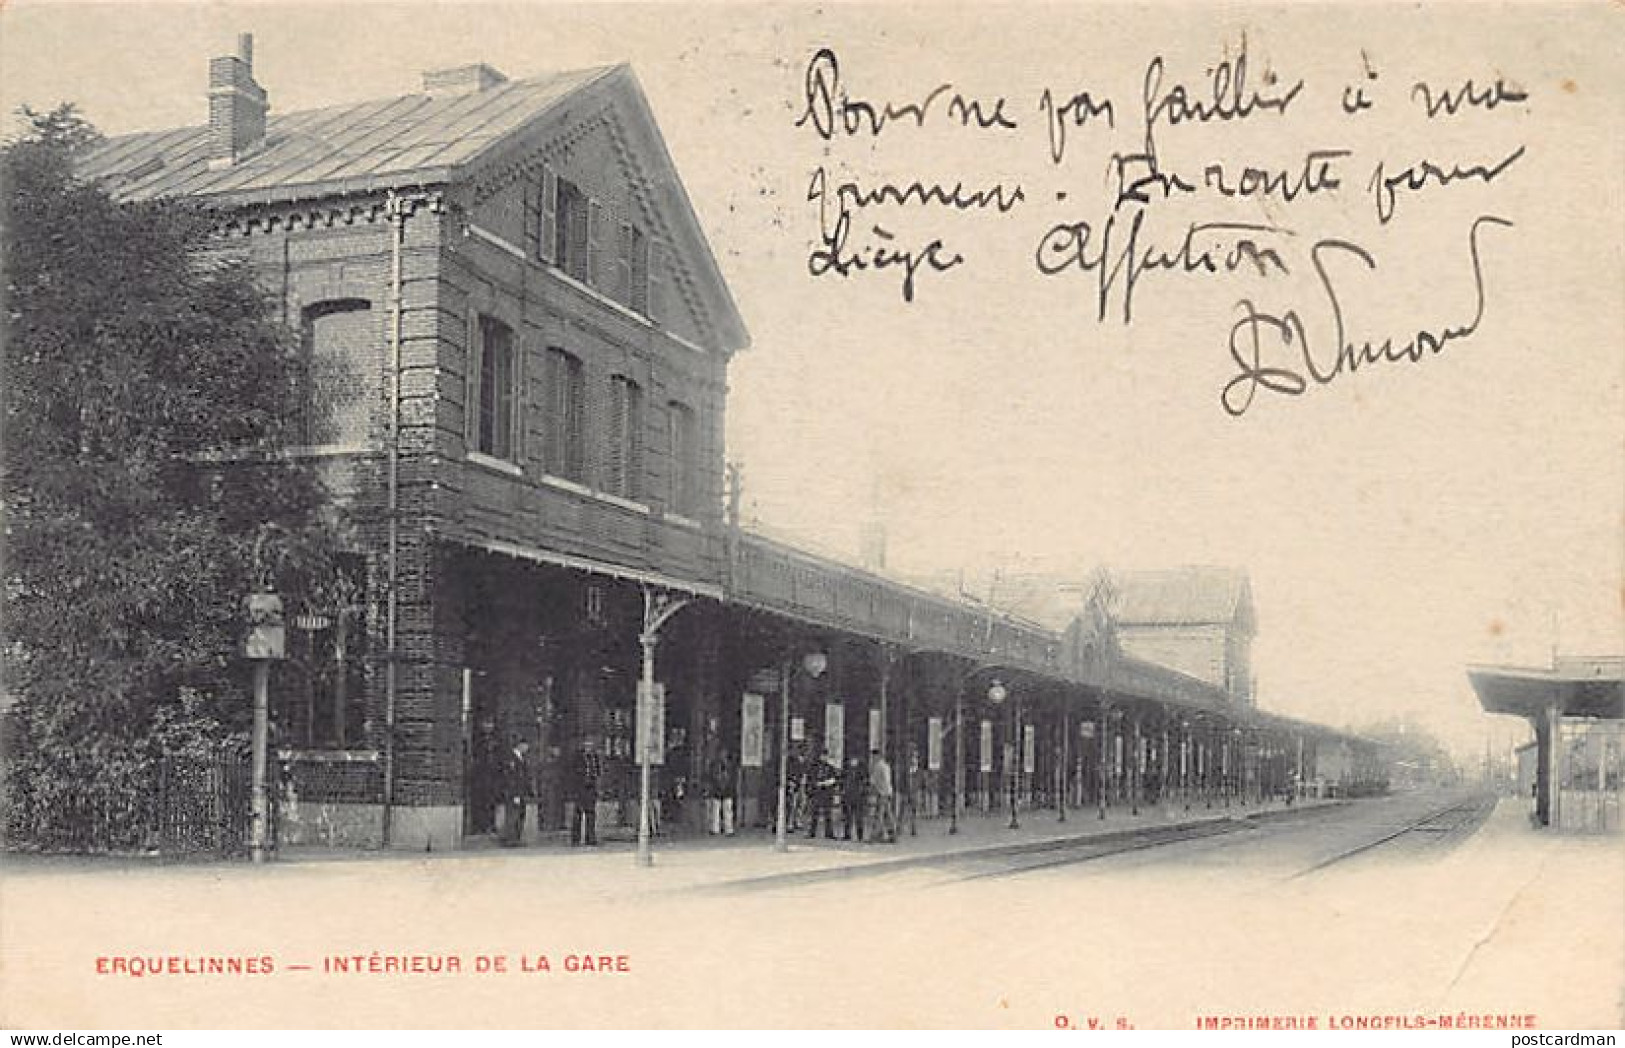 Pour ne pas faillir à ma
promesse. En route pour
Liège. Affection
ERQUELINNES — INTÉRIEUR DE LA GARE
O. V. S. IMPRIMERIE LONGFILS-MÉRENNE
postcardman